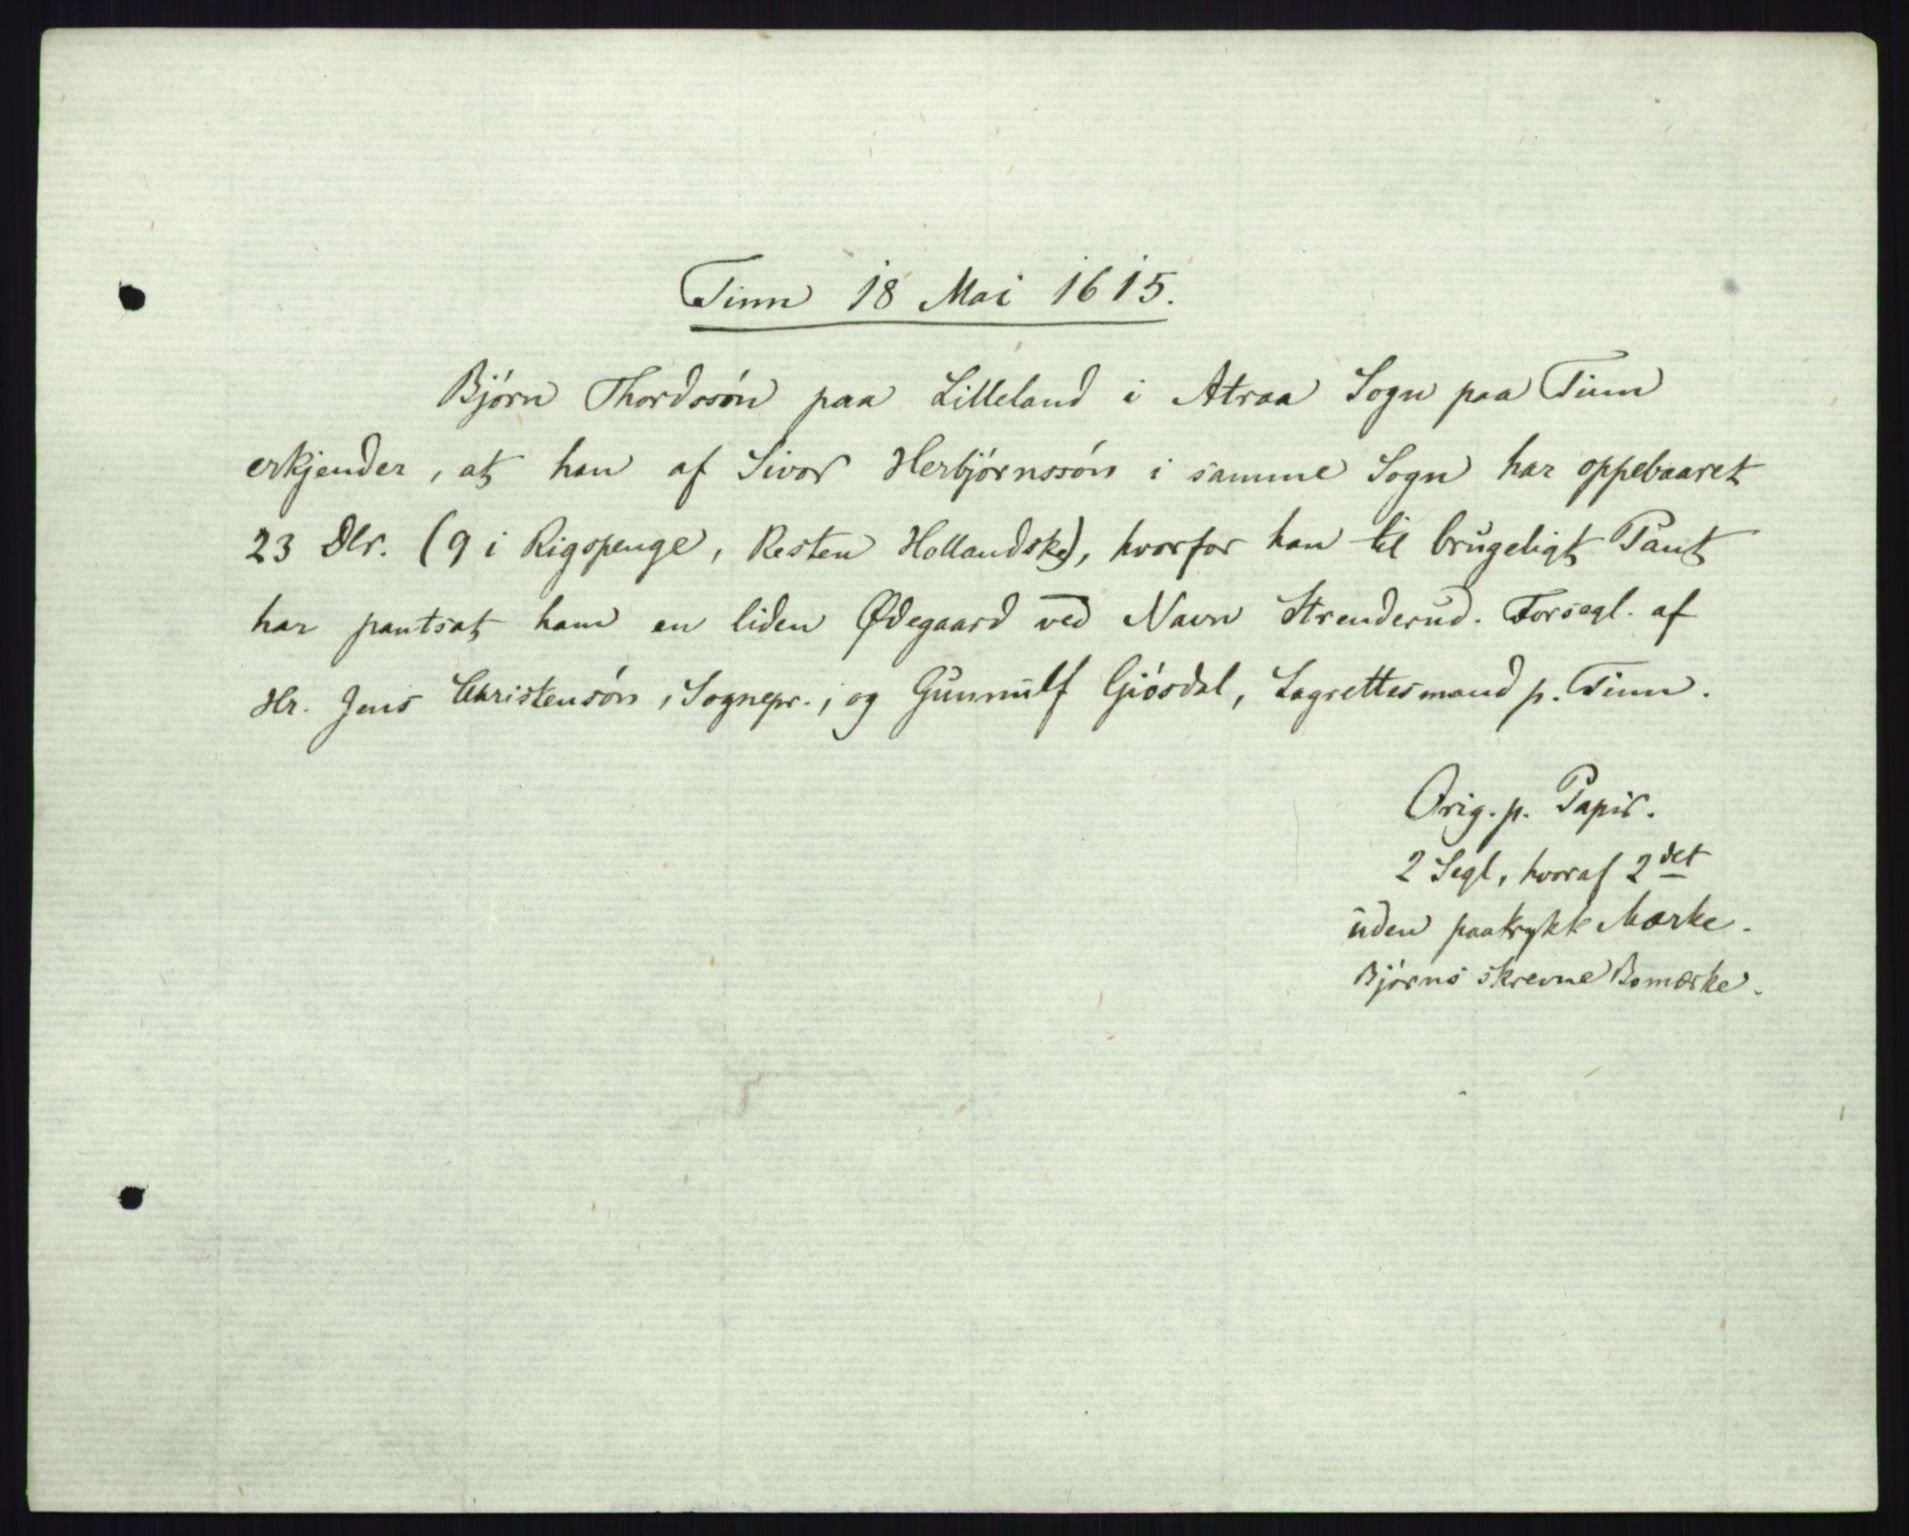 Tinn 18 Mai 1615.
Bjørn Thordssøn paa Lilleland i Atraa Sogn paa Tinn
erkjender, at han af Sivor Herbjørnssøn i samme Sogn har oppebaaret
23 Dlr. (9 i Rigspenge, Resten Hollandske), hvorfor han til brugeligt Pant
har pantsat ham en liden Ødegaard ved Navn Strenderud. Forsegl. af
Hr. Jens Christensøn, Sognepr., og Gunnulf Gjøsdal, Lagrettesmand p. Tinn.
Orig. p. Papir.
2 Segl, hvoraf 2det
uden paatrykt Mærke.
Bjørns skrevne Bomærke.